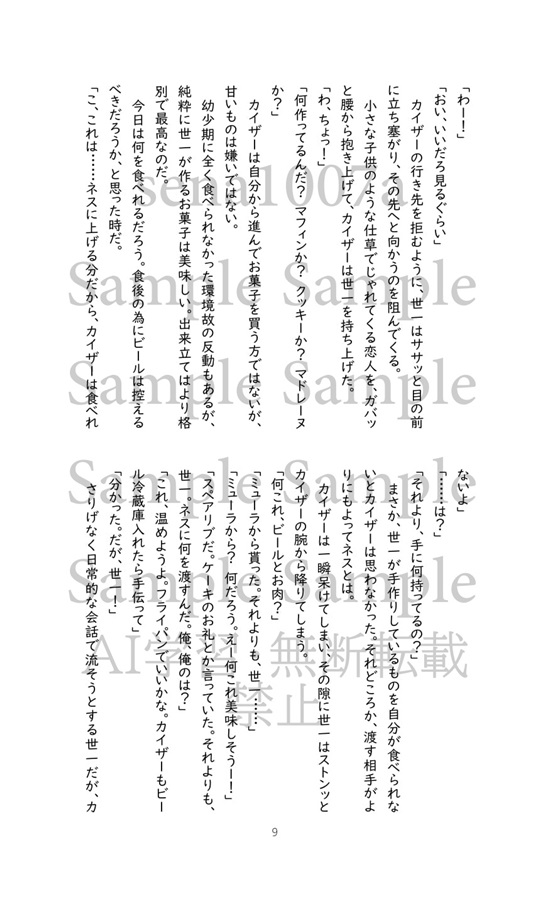 「わー！」
「おい、いいだろ見るぐらい」
　カイザーの行き先を拒むように、世一はササッと目の前
に立ち塞がり、その先へと向かうのを阻んでくる。
　小さな子供のような仕草でじゃれてくる恋人を、ガバッ
と腰から抱き上げて、カイザーは世一を持ち上げた。
「わ、ちょっ！」
「何作ってるんだ？ マフィンか？ クッキーか？ マドレーヌ
か？」
　カイザーは自分から進んでお菓子を買う方ではないが、
甘いものは嫌いではない。
　幼少期に全く食べられなかった環境故の反動もあるが、
純粋に世一が作るお菓子は美味しい。出来立てはより格
別で最高なのだ。
　今日は何を食べれるだろう。食後の為にビールは控える
べきだろうか、と思った時だ。
「こ、これは……ネスに上げる分だから、カイザーは食べれ
ないよ」
「……は？」
「それより、手に何持ってるの？」
　まさか、世一が手作りしているものを自分が食べられな
いとカイザーは思わなかった。それどころか、渡す相手がよ
りにもよってネスとは。
　カイザーは一瞬呆けてしまい、その隙に世一はストンッと
カイザーの腕から降りてしまう。
「何これ、ビールとお肉？」
「ミューラから貰った。それよりも、世一……」
「ミューラから？ 何だろう。えー何これ美味しそうー！」
「スペアリブだ。ケーキのお礼とか言っていた。それよりも、
世一。ネスに何を渡すんだ。俺、俺のは？」
「これ、温めようよ。フライパンでいいかな。カイザーもビー
ル冷蔵庫入れたら手伝って」
「分かった。だが、世一ー！」
　さりげなく日常的な会話で流そうとする世一だが、カ
9
sena1007a
Sample Sample
Sample Sample
Sample Sample
Sample Sample
AI学習 無断転載
禁止